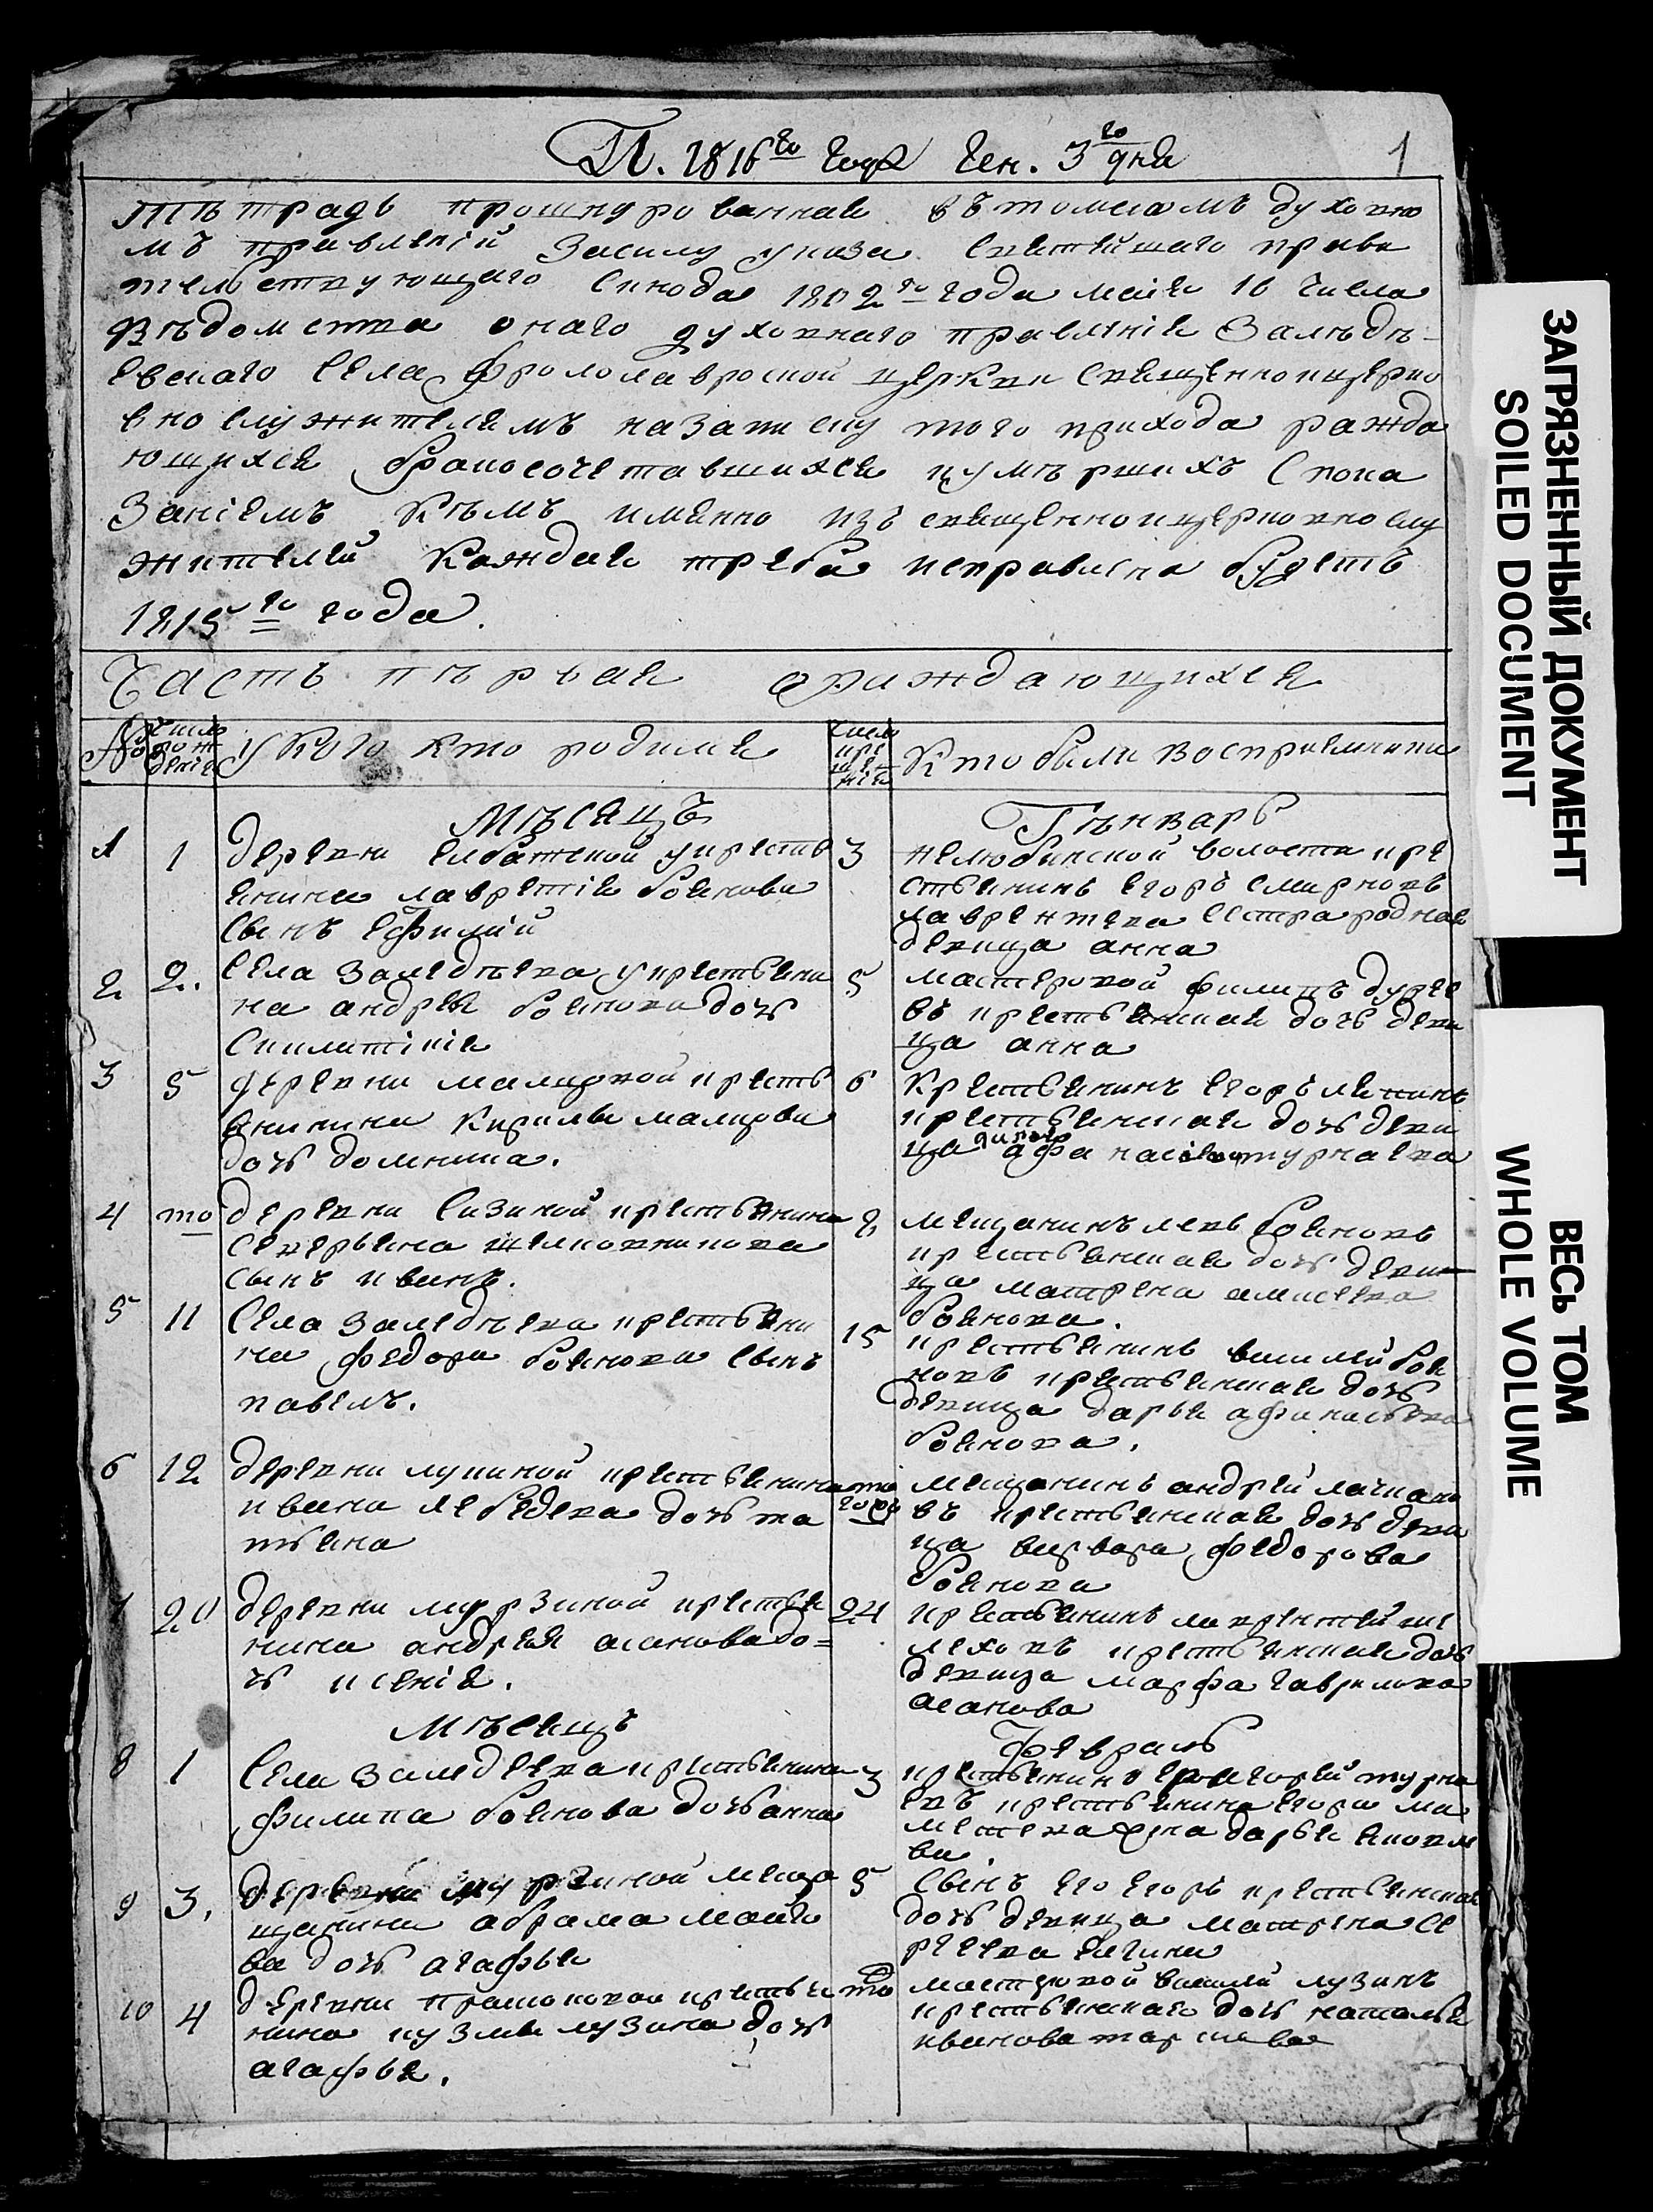 П. 1816го года Ген. 3го дня
1
Тѣтрадь прошнурованная въ томскомъ духовно
мъ правленіи Засилу указа Святѣйшаго прави
тельствующаго Синода 1802го года маія 16 числа
вѣдомства онаго духовнаго правленія Заледѣ-
евскаго села Фрололавроской церкви священноицерко
вно служителямъ на записку того прихода ражда
ющихся бракосочетавшихся иумѣршихъ Спока
Заніемъ Кѣмъ имянно изъ священноицерковнослу
жителей Каждая треба исправлена будетъ
1815го года.
Часть пѣрвая ораждающихся
№
число рождѣнія
У Кого кто родился
число крещенія
Кто были восприемники
Мѣсяцъ
Гѣнварь
1 1
деревни укрестья
янина лаврентія боянова
сынъ ефимій
3
нелюбинской волости кре
стьянинъ егоръ смирновъ
лаврентева сестра родная
девица анна
2 2.
Села заледѣева укрестьяни
на андрея боянова дочь
5
мастеровой филипъ
въ крестьянская дочь деви
ца анна
3 5
деревни малцовой кресть
янинина Кирилы малцова
дочь домника.
6
Крестьянинъ егоръ
крестьянская дочь деви
ца
4 то
деревни Сизиной крестьянина
северьяна шелковникова
сынъ иванъ.
8
мещанинъ левъ бояновъ
крестьянская дочь деви
ца матрена алисеева
боянова.
5 11
Села заледѣева крестьяни
на федора боянова сынъ
павелъ.
15
крестьянинъ василей боя
новъ крестьянская дочь
девица дарья афанасьева
боянова.
6 12
деревни лупиной крестьянина
ивана лебедева дочь та
тьяна
того
мещанинъ андрей
въ крестьянская дочь деви
ца варвара федорова
боянова
7 20
деревни мурзиной крестья
нина андрея асанова до=
чь ксенія.
24
крестьянинъ лаврентей ше
леховъ крестьянская дочь
девица марфа гаврилова
асанова
Мѣсяцъ
Февраль
8 1
Села заледеева крестьянина
филипа боянова дочь анна
3
крестьянинъ григорей турна
евъ крестьянина егора ма
жена дарья яковле
ва.
9 3.
деревни меща
щанина абрама
ва дочь агафья
5
Сынъ его егоръ крестьянская
дочь девица матрена се
ргеева
10 4
деревни крестья
нина кузмы лузина дочь
агафья.
то
мастеровой василей лузинъ
крестьянская дочь наталья
иванова
ЗАГРЯЗНЕННЫЙ ДОКУМЕНТ
SOILED DOCUMENT
ВЕСЬ ТОМ
WHOLE VOLUME